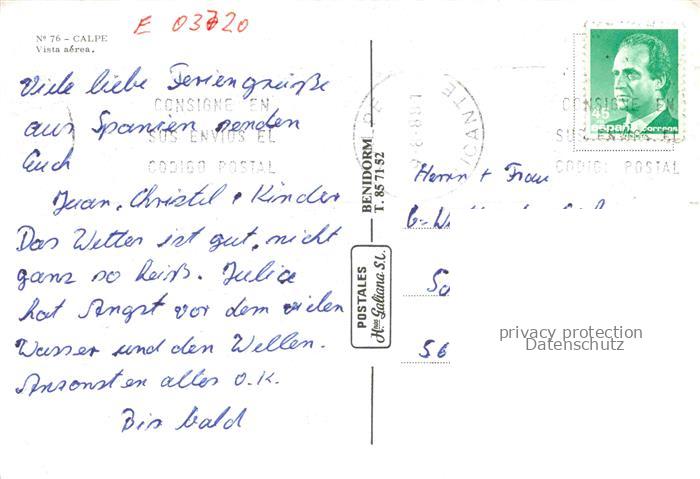 E 03720
Nº 76 - CALPE
Vista aérea.
Viele liebe Feriengrüße
aus Spanien senden
Euch
Juan, Christel + Kinder
Das Wetter ist gut, nicht
ganz so heiß. Julia
hat Angst vor dem vielen
Wasser und den Wellen.
Ansonsten alles O.K.
Bis bald
CONSIGNE EN
SUS ENVIOS EL
CODIGO POSTAL
BENIDORM
T. 85 71 52
POSTALES
Hnos Galiana S.L.
ALICANTE
45
españa correos
CONSIGNE EN
SUS ENVIOS EL
CODIGO POSTAL
Herrn + Frau
50
56
privacy protection
Datenschutz